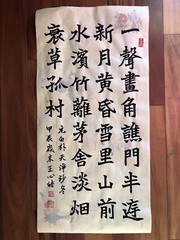 一聲畫角譙門半庭
新月黄昏雪里山前
水濱竹籬茅舍淡烟
衰草孤村
元白朴天净沙冬
甲辰歲末王心